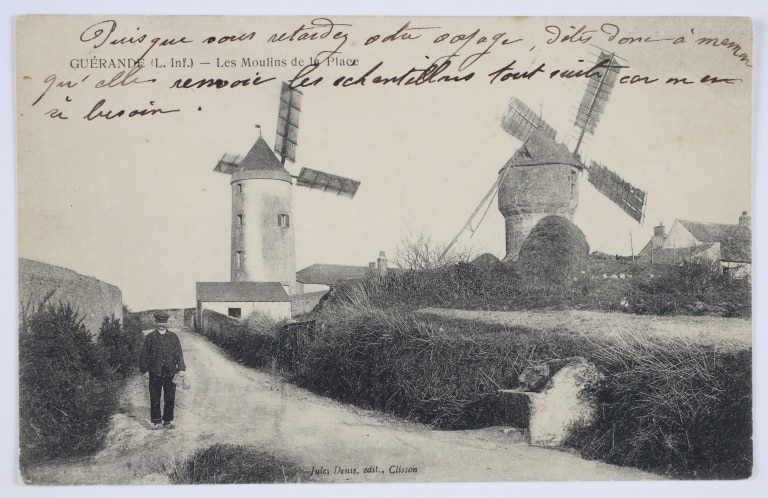 Puisque vous retardez votre voyage, dites donc à maman
GUÉRANDE (L. Inf.) — Les Moulins de la Place
qu'elle renvoie les échantillons tout suite car on en
a besoin.
Jules Denis, édit., Clisson